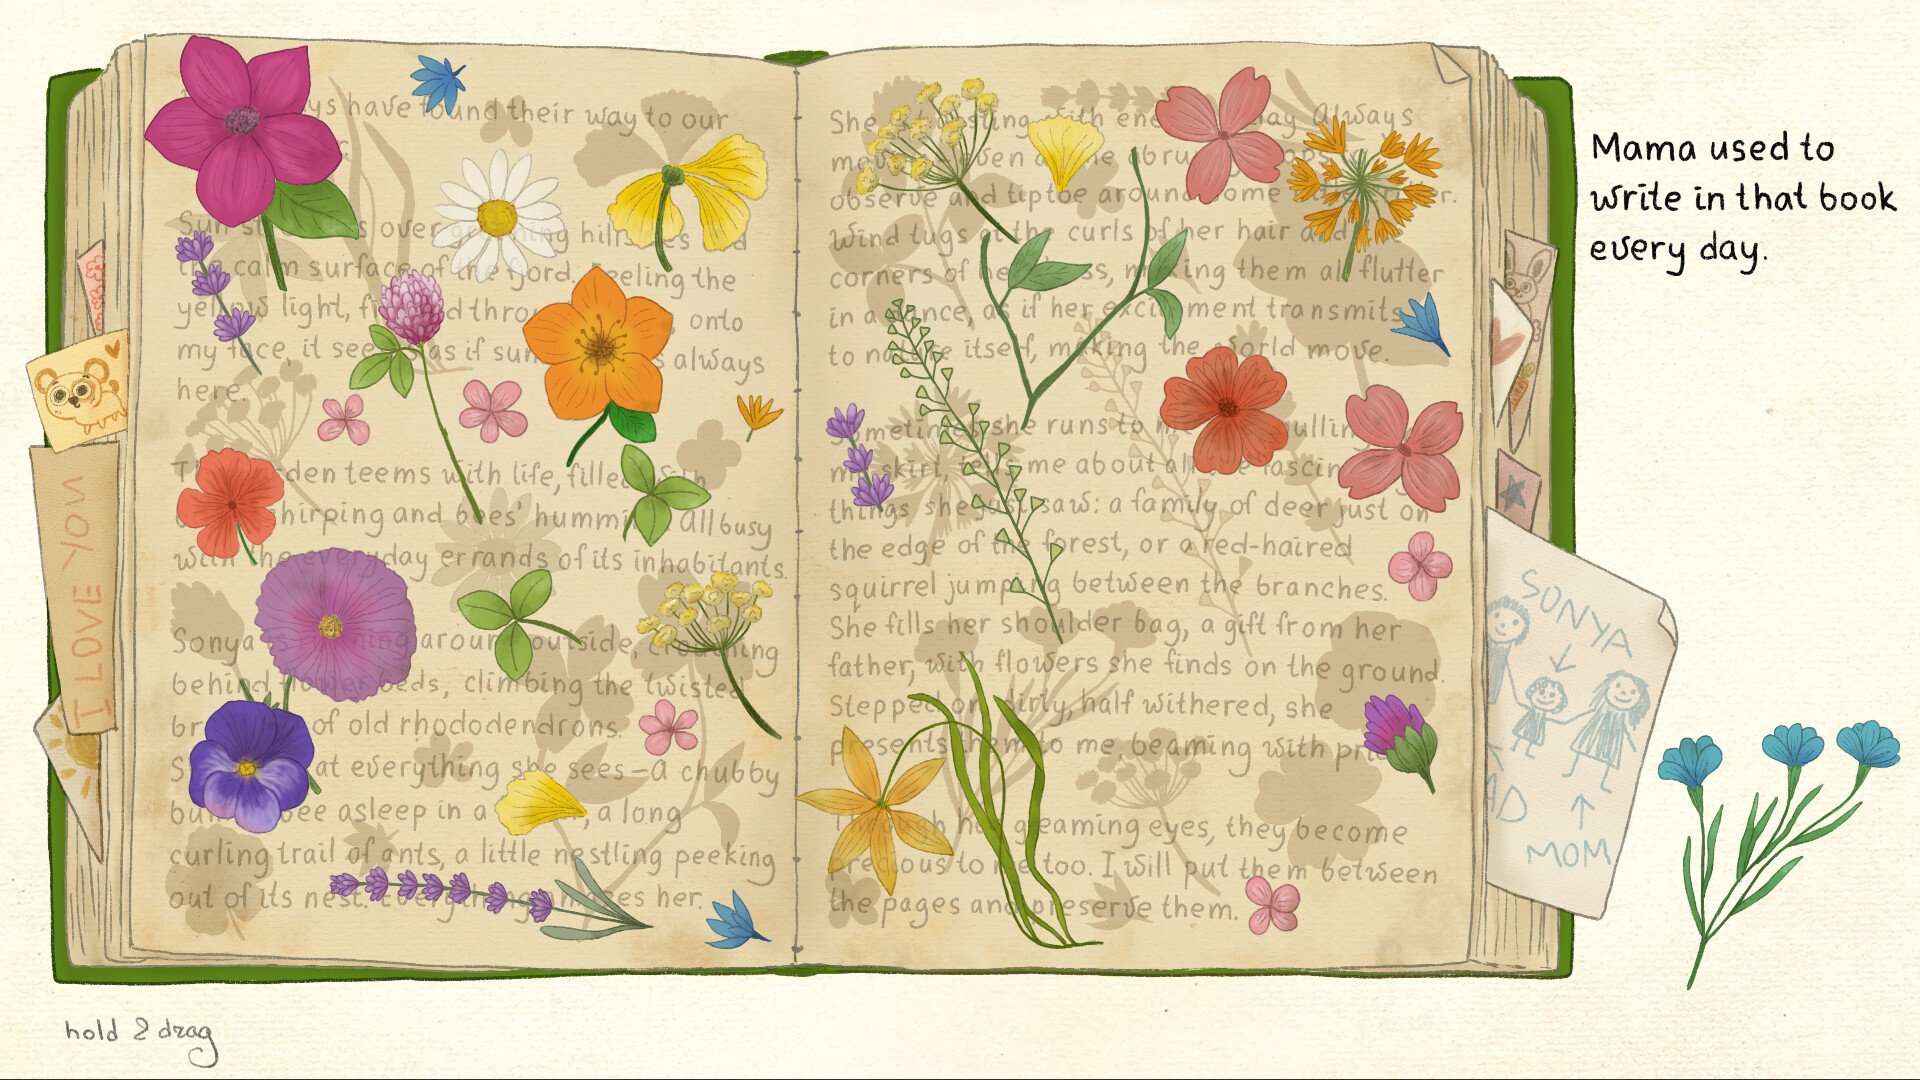 I LOVE YOU
ys have found their way to our
s over hills es d
the calm surface of the fjord. Feeling the
yellow light, f d thro , onto
my face, it see as if sun s always
here.
den teems with life, filled with
chirping and bees' hummi All busy
with the everyday errands of its inhabitants.
Sonya is running around outside, crouching
behind flower beds, climbing the twisted
br of old rhododendrons.
S at everything she sees—a chubby
bumblebee asleep in a , a long
curling trail of ants, a little nestling peeking
out of its nest. Everything amazes her.
She sting with ene ay Always
mo even a he abru ops
observe and tiptoe around some er.
Wind tugs at the curls of her hair and
corners of her dress, making them all flutter
in a dance, as if her excitement transmits
to nature itself, making the world move.
Sometimes she runs to m pulling
my skirt, tells me about all the fascin
things she just saw: a family of deer just on
the edge of the forest, or a red-haired
squirrel jumping between the branches.
She fills her shoulder bag, a gift from her
father, with flowers she finds on the ground.
Stepped on, dirty, half withered, she
presents them to me, beaming with pri
Through her gleaming eyes, they become
precious to me too. I will put them between
the pages and preserve them.
SONYA
AD
MOM
Mama used to
write in that book
every day.
hold & drag